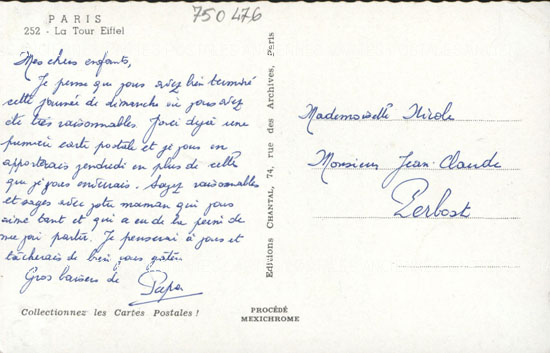 750 476
PARIS
252 - La Tour Eiffel
Mes chers enfants,
Je pense que vous avez bien terminé
cette journée de dimanche où vous avez
été très raisonnables. Voici déjà une
première carte postale et je vous en
apporterais vendredi en plus de celles
que je vous enverrais. Soyez raisonnables
et sages avec votre maman qui vous
aime tant et qui a eu de la peine de
me voir partir. Je penserai à vous et
tâcherais de bien vous gâter.
Gros baisers de Papa
Collectionnez les Cartes Postales !
Editions CHANTAL, 74, rue des Archives, Paris
Mademoiselle Nicole
Monsieur Jean-Claude
Perbost
PROCÉDÉ
MEXICHROME